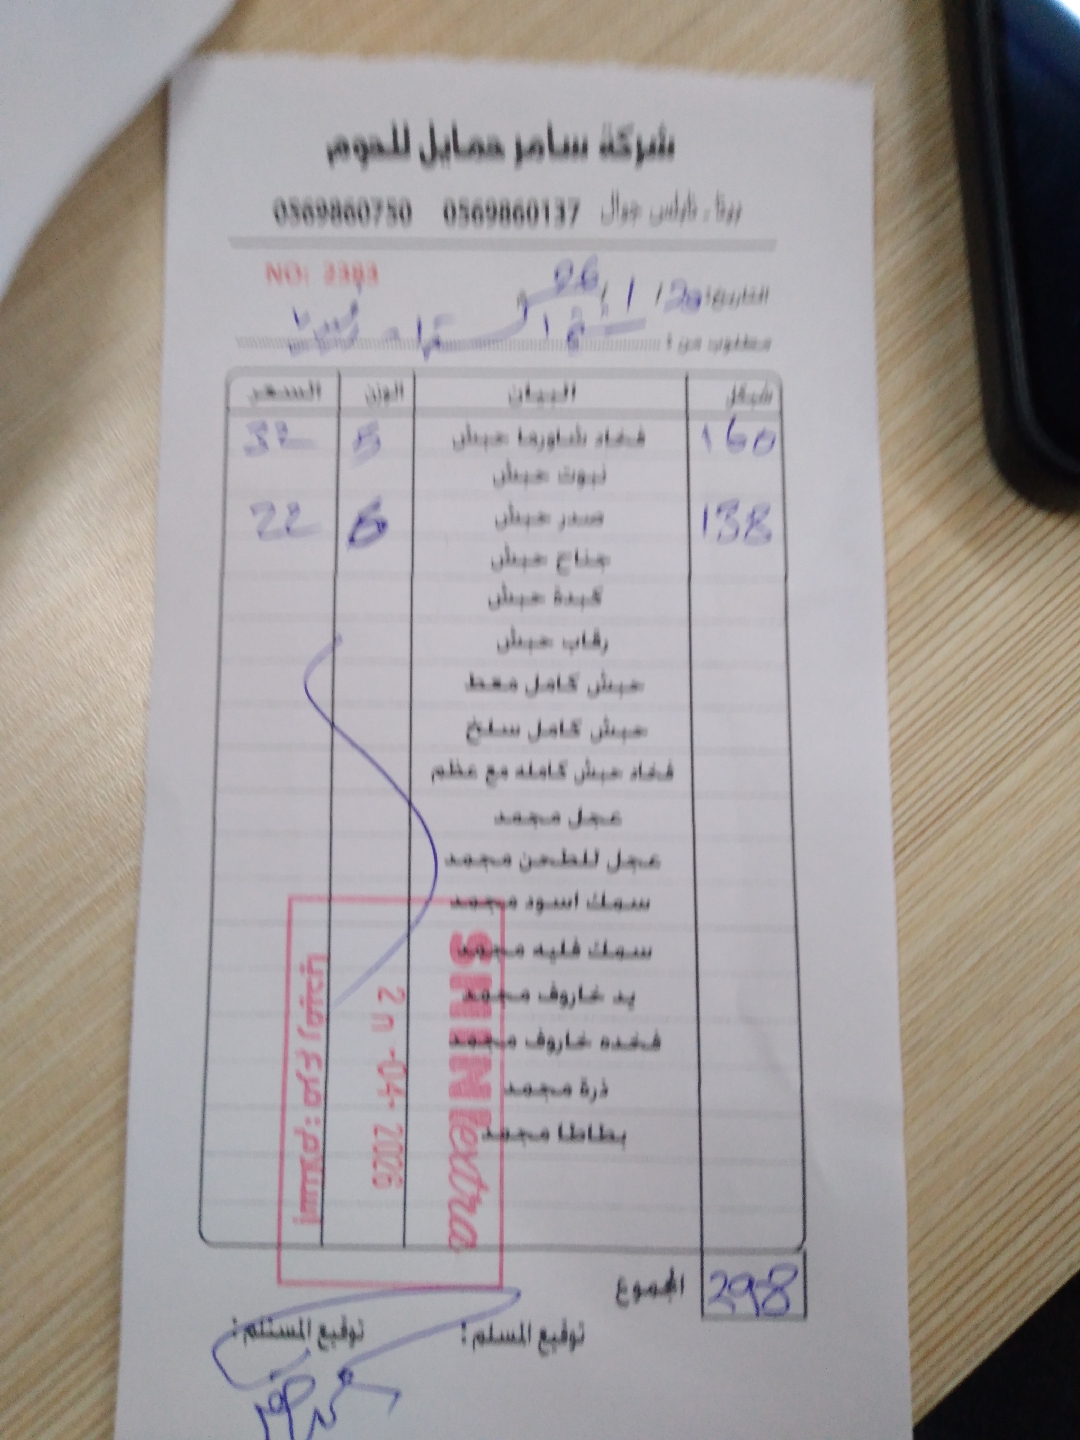 شركة سامر حمايل للحوم
بيتا - نابلس جوال 0569860137 0569860750
NO: 2383
التاريخ: 20 / 1 / 26
مطلوب من :
شيكل البيان الوزن السعر
160 فخاد شاورما حبش 5 32
نبوت حبش
138 صدر حبش 6 22
جناح حبش
كبدة حبش
رقاب حبش
حبش كامل معط
حبش كامل سلخ
فخاد حبش كامله مع عظم
عجل مجمد
عجل للطحن مجمد
سمك اسود مجمد
سمك فليه مجمد
يد خاروف مجمد
فخده خاروف مجمد
ذرة مجمد
بطاطا مجمد
SHINIextra
-04- 2026
298 المجموع
توقيع المسلم : توقيع المستلم :